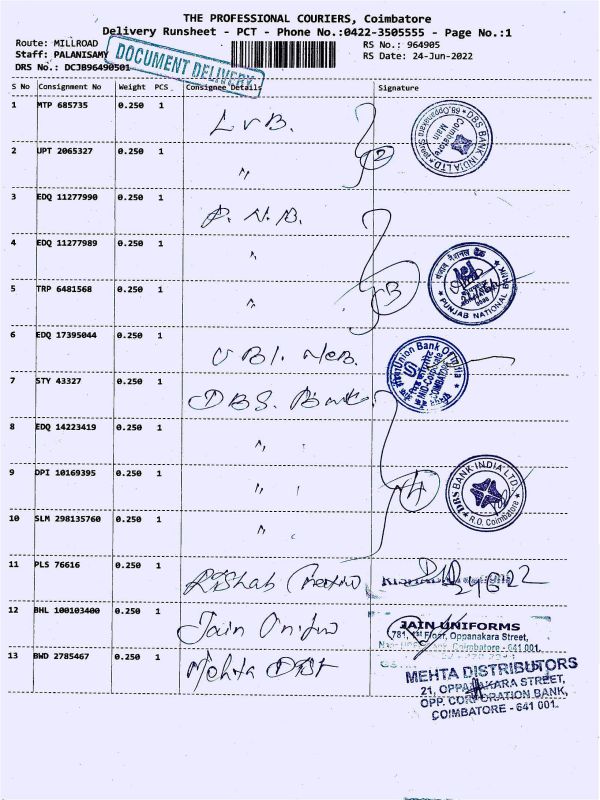 THE PROFESSIONAL COURIERS, Coimbatore
Delivery Runsheet - PCT - Phone No.:0422-3505555 - Page No.:1
Route: MILLROAD
RS No.: 964905
Staff: PALANISAMY
RS Date: 24-Jun-2022
DRS No.: DCJB96490501
DOCUMENT DELIVERY
S No Consignment No Weight PCS Consignee Details Signature
1 MTP 685735 0.250 1 LVB.
DBS BANK INDIA LTD. 68, Oppanakara Street Coimbatore Main
2 UPT 2065327 0.250 1 " 2
3 EDQ 11277990 0.250 1 P.N.B.
4 EDQ 11277989 0.250 1 "
पंजाब नैशनल बैंक PUNJAB NATIONAL BANK
5 TRP 6481568 0.250 1 " 3
6 EDQ 17395044 0.250 1 UBI.
Union Bank Of India MID-Corporate COIMBATORE
7 STY 43327 0.250 1 DBS. Bank.
8 EDQ 14223419 0.250 1 "
9 DPI 10169395 0.250 1 " 4
DBS BANK INDIA LTD. R.O. Coimbatore
10 SLM 298135760 0.250 1 "
11 PLS 76616 0.250 1 Rishab
12 BHL 100103400 0.250 1 Jain
JAIN UNIFORMS
781, 1st Floor, Oppanakara Street,
Coimbatore - 641 001.
13 BWD 2785467 0.250 1 Mehta DBT
MEHTA DISTRIBUTORS
21, OPPANAKARA STREET,
OPP. CORPORATION BANK,
COIMBATORE - 641 001.